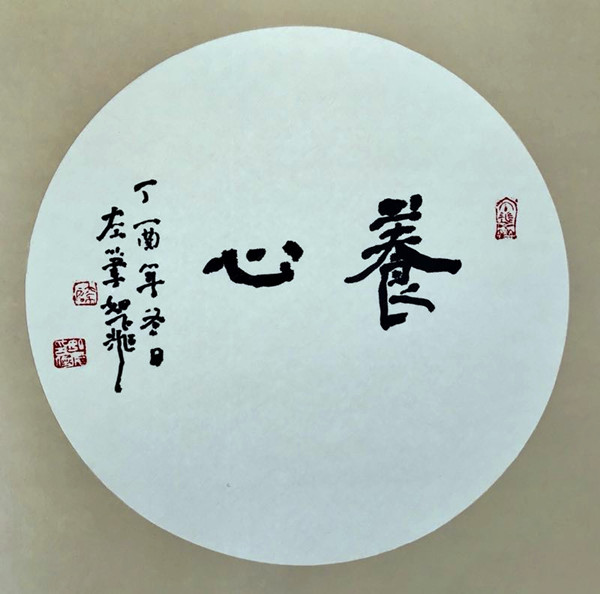 養心
丁酉年冬日
左筆如飛